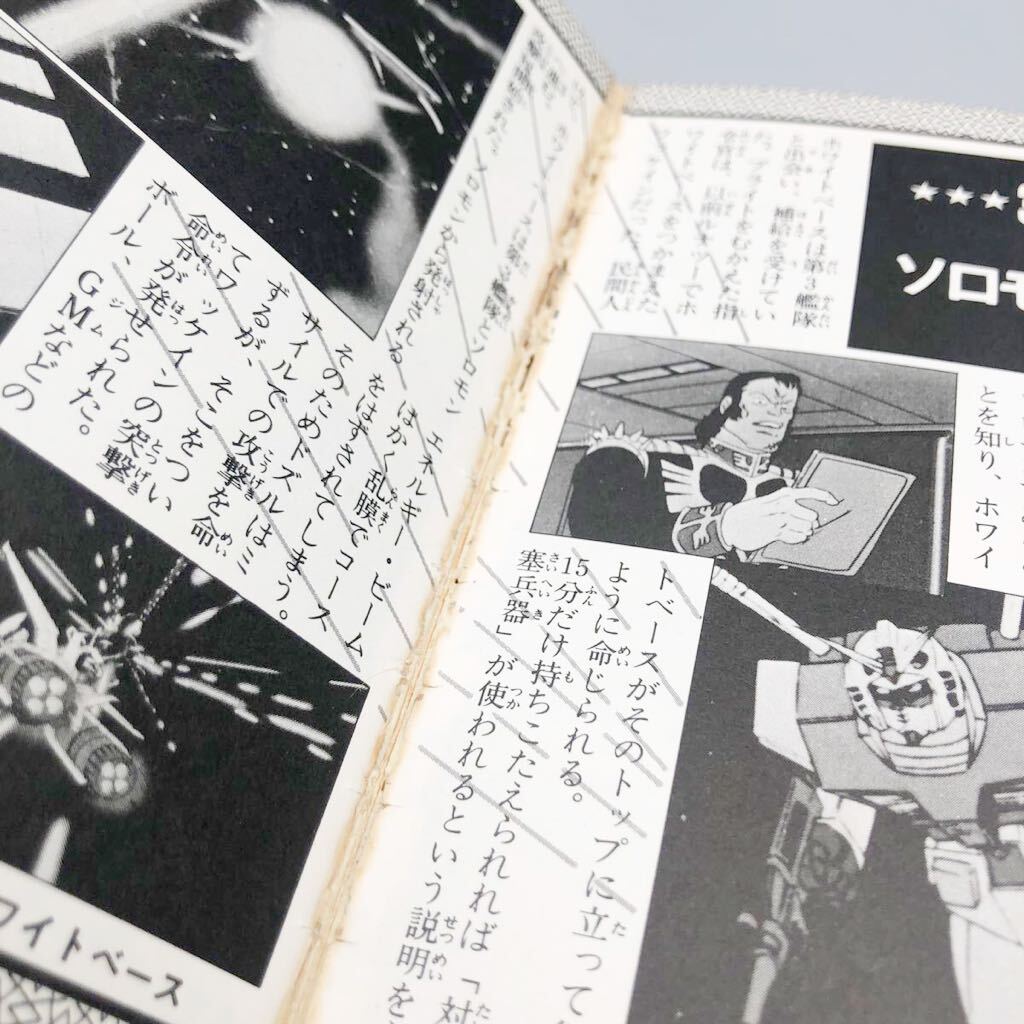 ★★★
ソロモ
ホワイトベースは第3艦隊
と出会い、補給を受けてい
た。ブライトをむかえた指
令官は、以前ルナツーでホ
ワイトベースをつかまえた
民間人
とを知り、ホワイ
トベースがそのトップに立って
ように命じられる。
15分だけ持ちこたえられれば「対
塞兵器」が使われるという説明を
第3艦隊とソロモン
ソロモンから発射される
エネルギー・ビーム
はかく乱膜でコース
をはずされてしまう。
そのためドズルはミ
サイルでの攻撃を命
ずるが、そこをつい
てワッケインの突撃
命令が発せられた。
ボール、GMなどの
ワイトベース